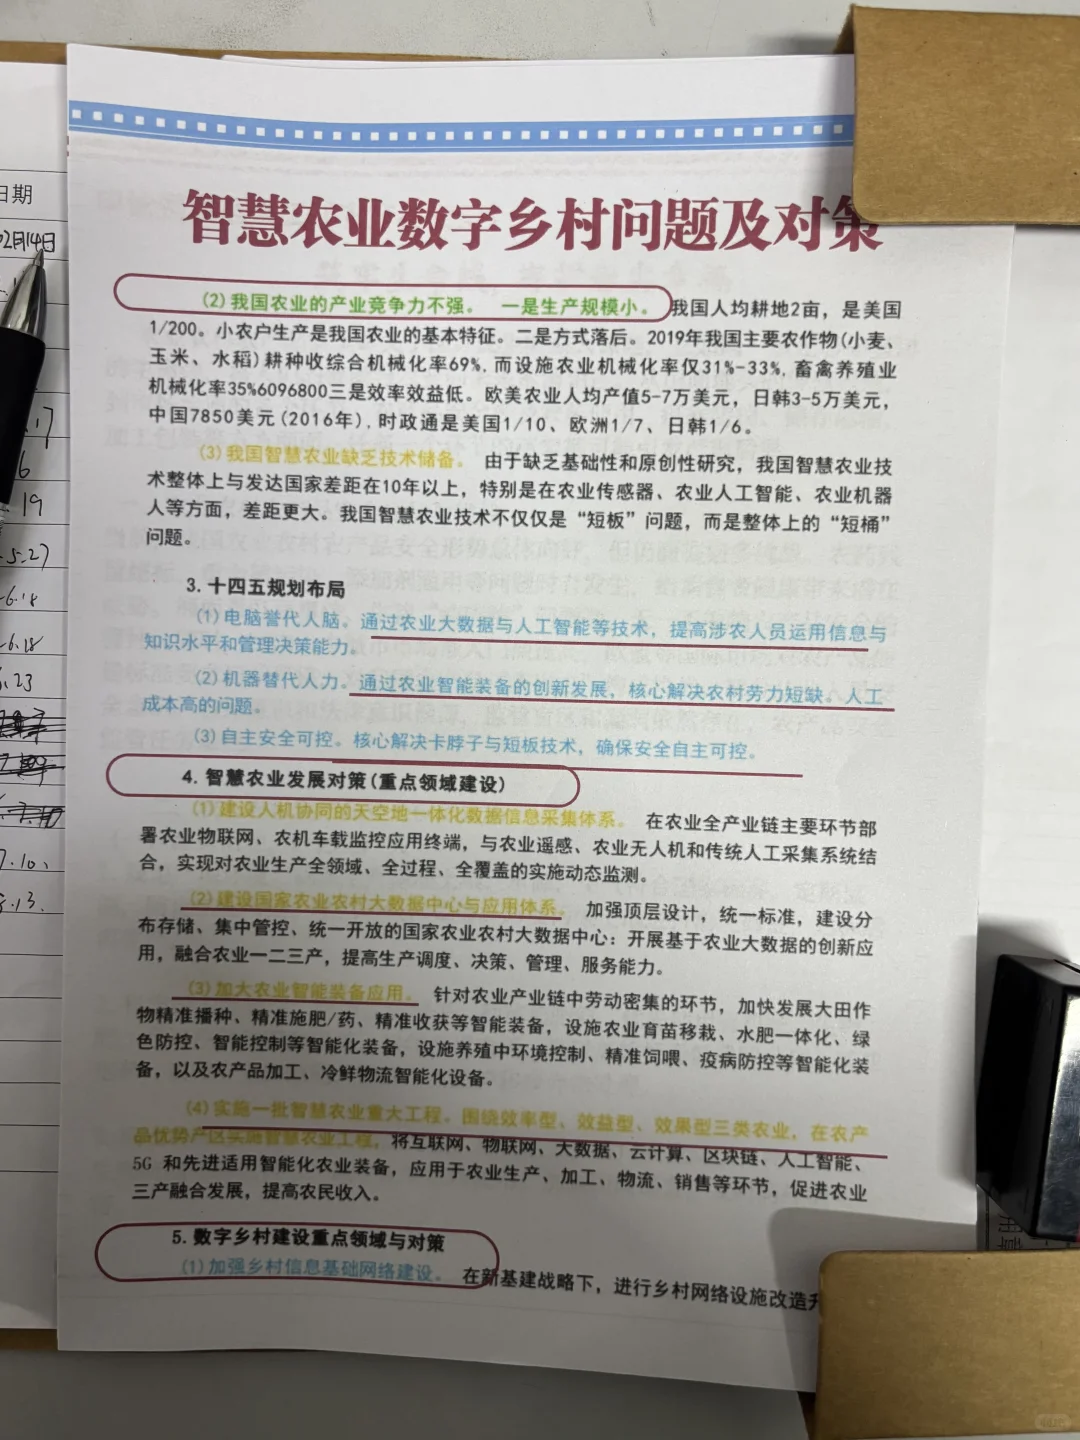 日期
02月14日
.17
6
19
5.27
6.18
6.18
.23
7.10.
8.13.
智慧农业数字乡村问题及对策
(2)我国农业的产业竞争力不强。 一是生产规模小。我国人均耕地2亩，是美国
1/200。小农户生产是我国农业的基本特征。二是方式落后。2019年我国主要农作物(小麦、
玉米、水稻)耕种收综合机械化率69%,而设施农业机械化率仅31%-33%,畜禽养殖业
机械化率35%6096800三是效率效益低。欧美农业人均产值5-7万美元，日韩3-5万美元，
中国7850美元(2016年),时政通是美国1/10、欧洲1/7、日韩1/6。
(3)我国智慧农业缺乏技术储备。 由于缺乏基础性和原创性研究，我国智慧农业技
术整体上与发达国家差距在10年以上，特别是在农业传感器、农业人工智能、农业机器
人等方面，差距更大。我国智慧农业技术不仅仅是“短板”问题，而是整体上的“短桶”
问题。
3.十四五规划布局
(1)电脑誉代人脑。通过农业大数据与人工智能等技术，提高涉农人员运用信息与
知识水平和管理决策能力。
(2)机器替代人力。通过农业智能装备的创新发展，核心解决农村劳力短缺。人工
成本高的问题。
(3)自主安全可控。核心解决卡脖子与短板技术，确保安全自主可控。
4.智慧农业发展对策(重点领域建设)
(1)建设人机协同的天空地一体化数据信息采集体系。 在农业全产业链主要环节部
署农业物联网、农机车载监控应用终端，与农业遥感、农业无人机和传统人工采集系统结
合，实现对农业生产全领域、全过程、全覆盖的实施动态监测。
(2)建设国家农业农村大数据中心与应用体系。 加强顶层设计，统一标准，建设分
布存储、集中管控、统一开放的国家农业农村大数据中心：开展基于农业大数据的创新应
用，融合农业一二三产，提高生产调度、决策、管理、服务能力。
(3)加大农业智能装备应用。 针对农业产业链中劳动密集的环节，加快发展大田作
物精准播种、精准施肥/药、精准收获等智能装备，设施农业育苗移栽、水肥一体化、绿
色防控、智能控制等智能化装备，设施养殖中环境控制、精准饲喂、疫病防控等智能化装
备，以及农产品加工、冷鲜物流智能化设备。
(4)实施一批智慧农业重大工程。围绕效率型、效益型、效果型三类农业，在农产
品优势产区实施智慧农业工程，将互联网、物联网、大数据、云计算、区块链、人工智能、
5G 和先进适用智能化农业装备，应用于农业生产、加工、物流、销售等环节，促进农业
三产融合发展，提高农民收入。
5.数字乡村建设重点领域与对策
(1)加强乡村信息基础网络建设。 在新基建战略下，进行乡村网络设施改造升